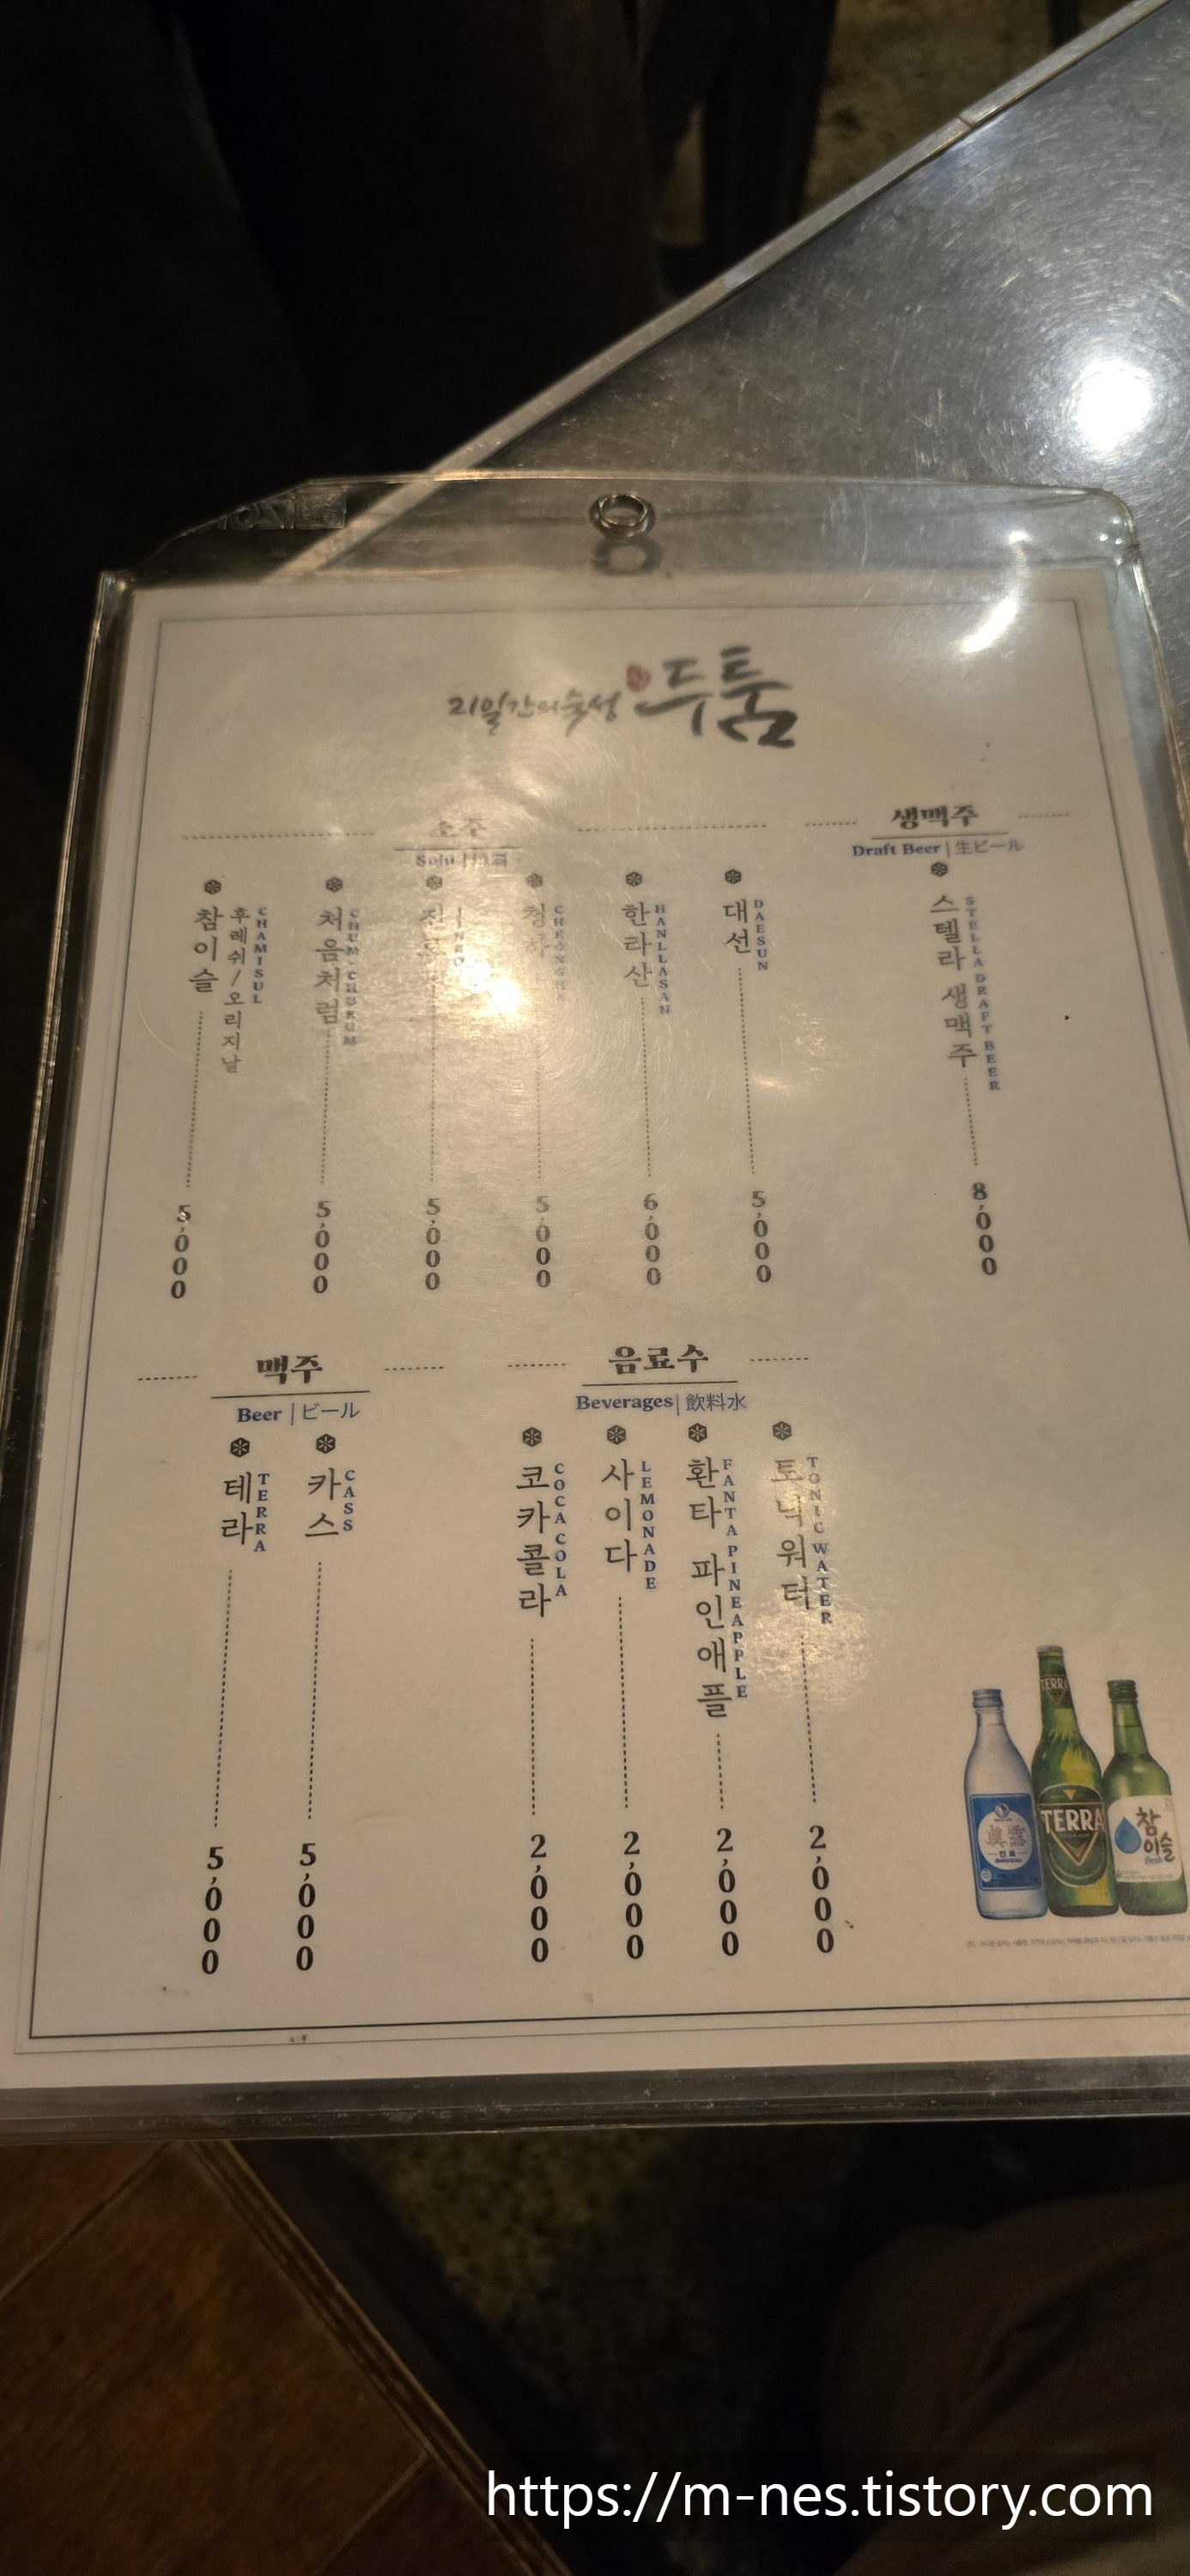 21일간의숙성 두툼
소주
Soju
참이슬
후레쉬/오리지날
CHAMISUL
5,000
처음처럼
CHUM-CHURUM
5,000
진로
JINRO
5,000
청하
CHEONGHA
5,000
한라산
HANLLASAN
6,000
대선
DAESUN
5,000
생맥주
Draft Beer | 生ビール
스텔라 생맥주
STELLA DRAFT BEER
8,000
맥주
Beer | ビール
테라
TERRA
5,000
카스
CASS
5,000
음료수
Beverages | 飲料水
코카콜라
COCA COLA
2,000
사이다
LEMONADE
2,000
환타 파인애플
FANTA PINEAPPLE
2,000
토닉워터
TONIC WATER
2,000
TERRA
眞露
진로
TERRA
참이슬
fresh
https://m-nes.tistory.com